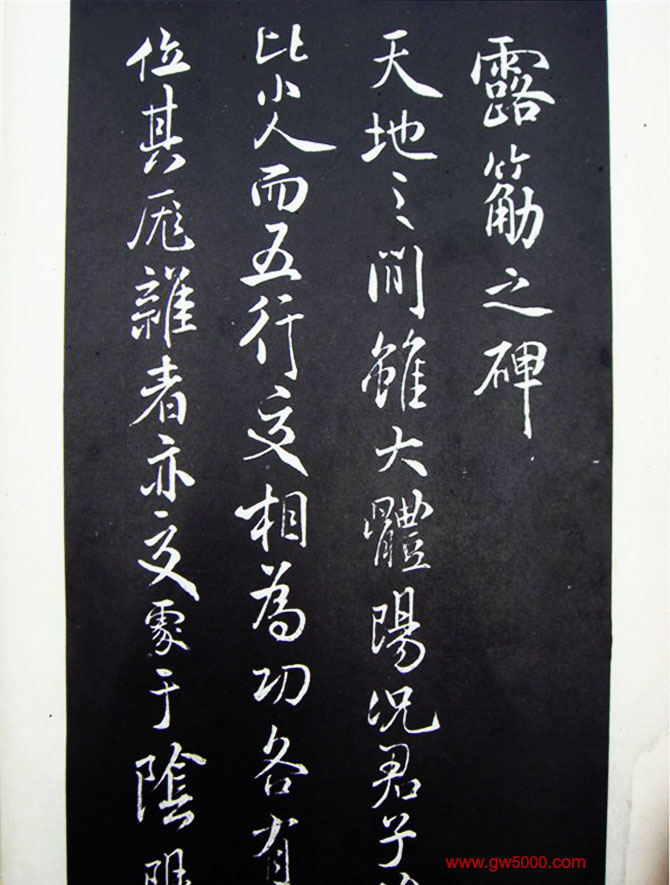 露筋之碑
天地之間雖大體陽況君子
比小人而五行交相為功各有
位其厖雜者亦交處于陰
www.gw5000.com